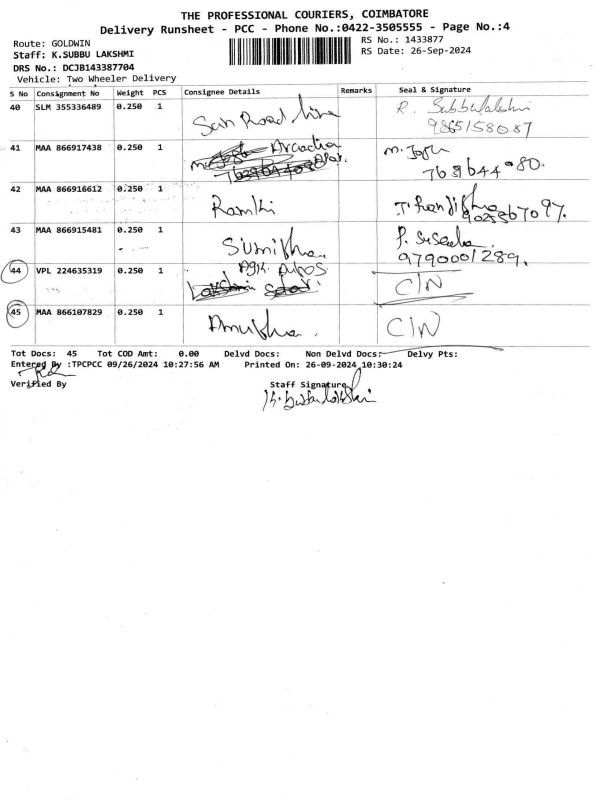 THE PROFESSIONAL COURIERS, COIMBATORE
Delivery Runsheet - PCC - Phone No.:0422-3505555 - Page No.:4
Route: GOLDWIN
RS No.: 1433877
Staff: K.SUBBU LAKSHMI
RS Date: 26-Sep-2024
DRS No.: DCJB143387704
Vehicle: Two Wheeler Delivery
S No Consignment No Weight PCS Consignee Details Remarks Seal & Signature
40 SLM 355336489 0.250 1 San Road line R. Subbulakshmi
9865158087
41 MAA 866917438 0.250 1 Arcadia
7639644080.
42 MAA 866916612 0.250 1 Ramki
43 MAA 866915481 0.250 1 Sumitha. P. Suseela
9790001289.
44 VPL 224635319 0.250 1 C/N
45 MAA 866107829 0.250 1 Anubha. C/N
Tot Docs: 45 Tot COD Amt: 0.00 Delvd Docs: Non Delvd Docs: Delvy Pts:
Entered By :TPCPCC 09/26/2024 10:27:56 AM Printed On: 26-09-2024 10:30:24
Verified By Staff Signature
K. Subbulakshmi